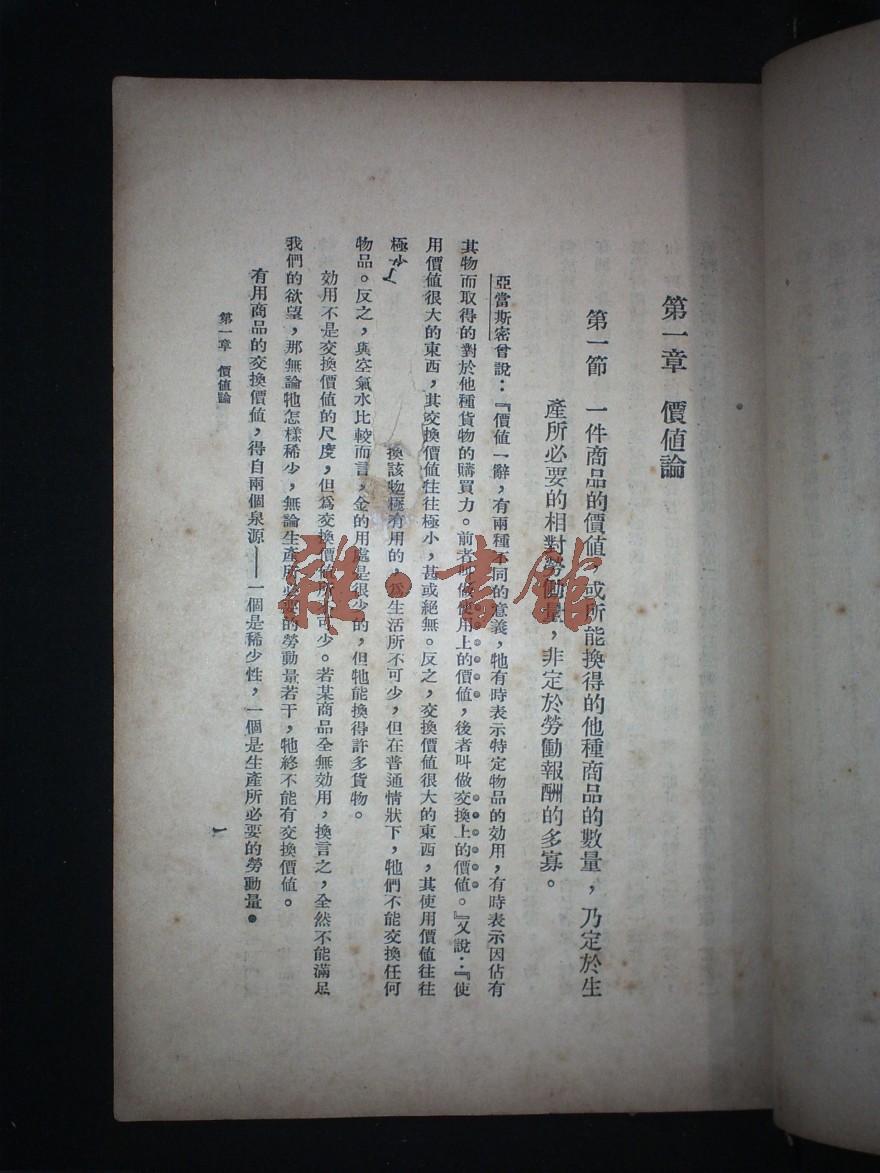 第一章 價值論
第一節 一件商品的價值 或所能換得的他種商品的數量，乃定於生
產所必要的相對勞動量，非定於勞動報酬的多寡。
亞當斯密曾說：『價值一辭，有兩種不同的意義，牠有時表示特定物品的効用，有時表示因佔有
其物而取得的對於他種貨物的購買力。前者叫做使用上的價值，後者叫做交換上的價值。』又說：『使
用價值很大的東西，其交換價值往往極小，甚或絕無。反之，交換價值很大的東西，其使用價值往往
極少
換該物極有用的，爲生活所不可少，但在普通情狀下，牠們不能交換任何
物品。反之，與空氣水比較而言，金的用處是很少的，但牠能換得許多貨物。
効用不是交換價值的尺度，但爲交換價值所 可少。若某商品全無効用，換言之，全然不能滿足
我們的欲望，那無論牠怎樣稀少，無論生產所必要的勞動量若干，牠終不能有交換價值。
有用商品的交換價值，得自兩個泉源——一個是稀少性，一個是生產所必要的勞動量。
第一章 價値論
一
雜·書館